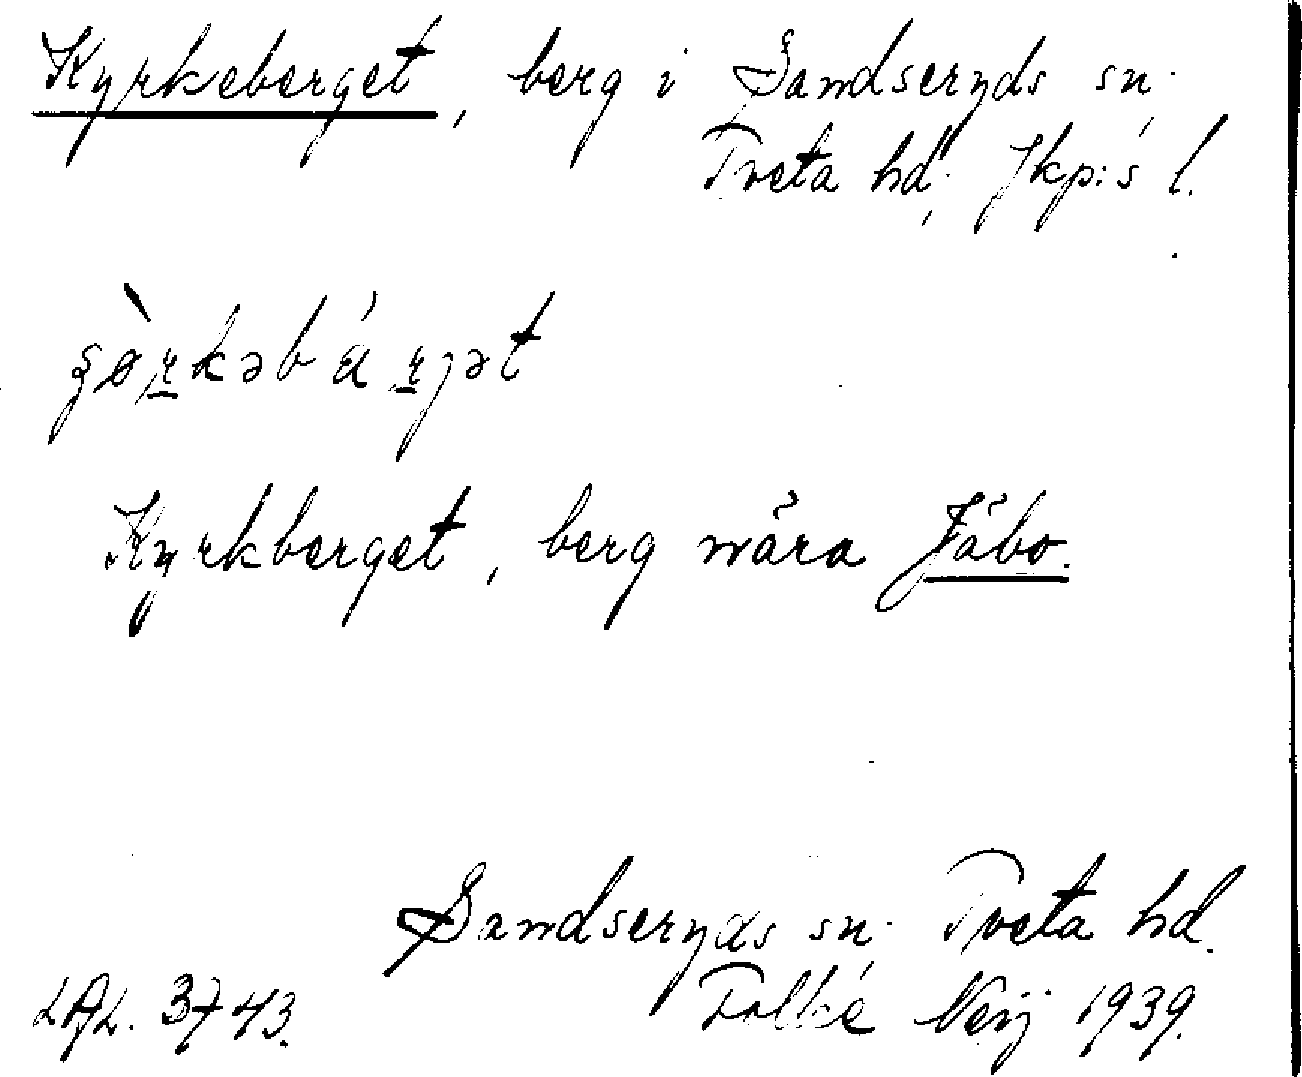 Kyrkeberget, berg i Sandseryds sn.
Tveta hd. Jkp:s l.
Kyrkberget, berg nära Jäbo.
Sandseryds sn. Tveta hd.
3743. Folke 1939.